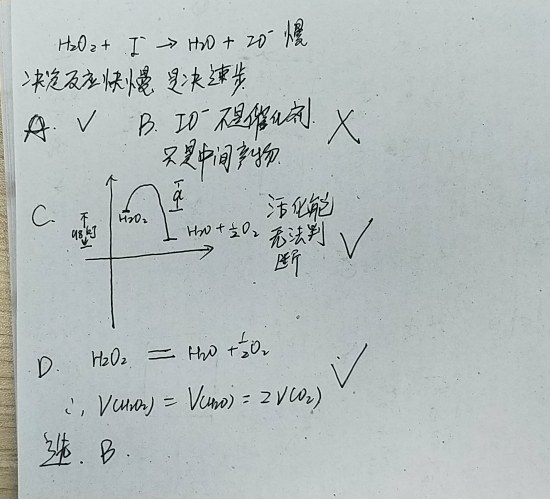 H₂O₂ + I⁻ → H₂O + IO⁻ 慢
决定反应快慢 是决速步
A. ✓ B. IO⁻ 不是催化剂. ×
只是中间产物
C. H₂O₂ H₂O + ½O₂ 活化能
98kJ 无法判 ✓
断
D. H₂O₂ = H₂O + ½O₂ ✓
∴ V(H₂O₂) = V(H₂O) = 2V(O₂)
选. B.